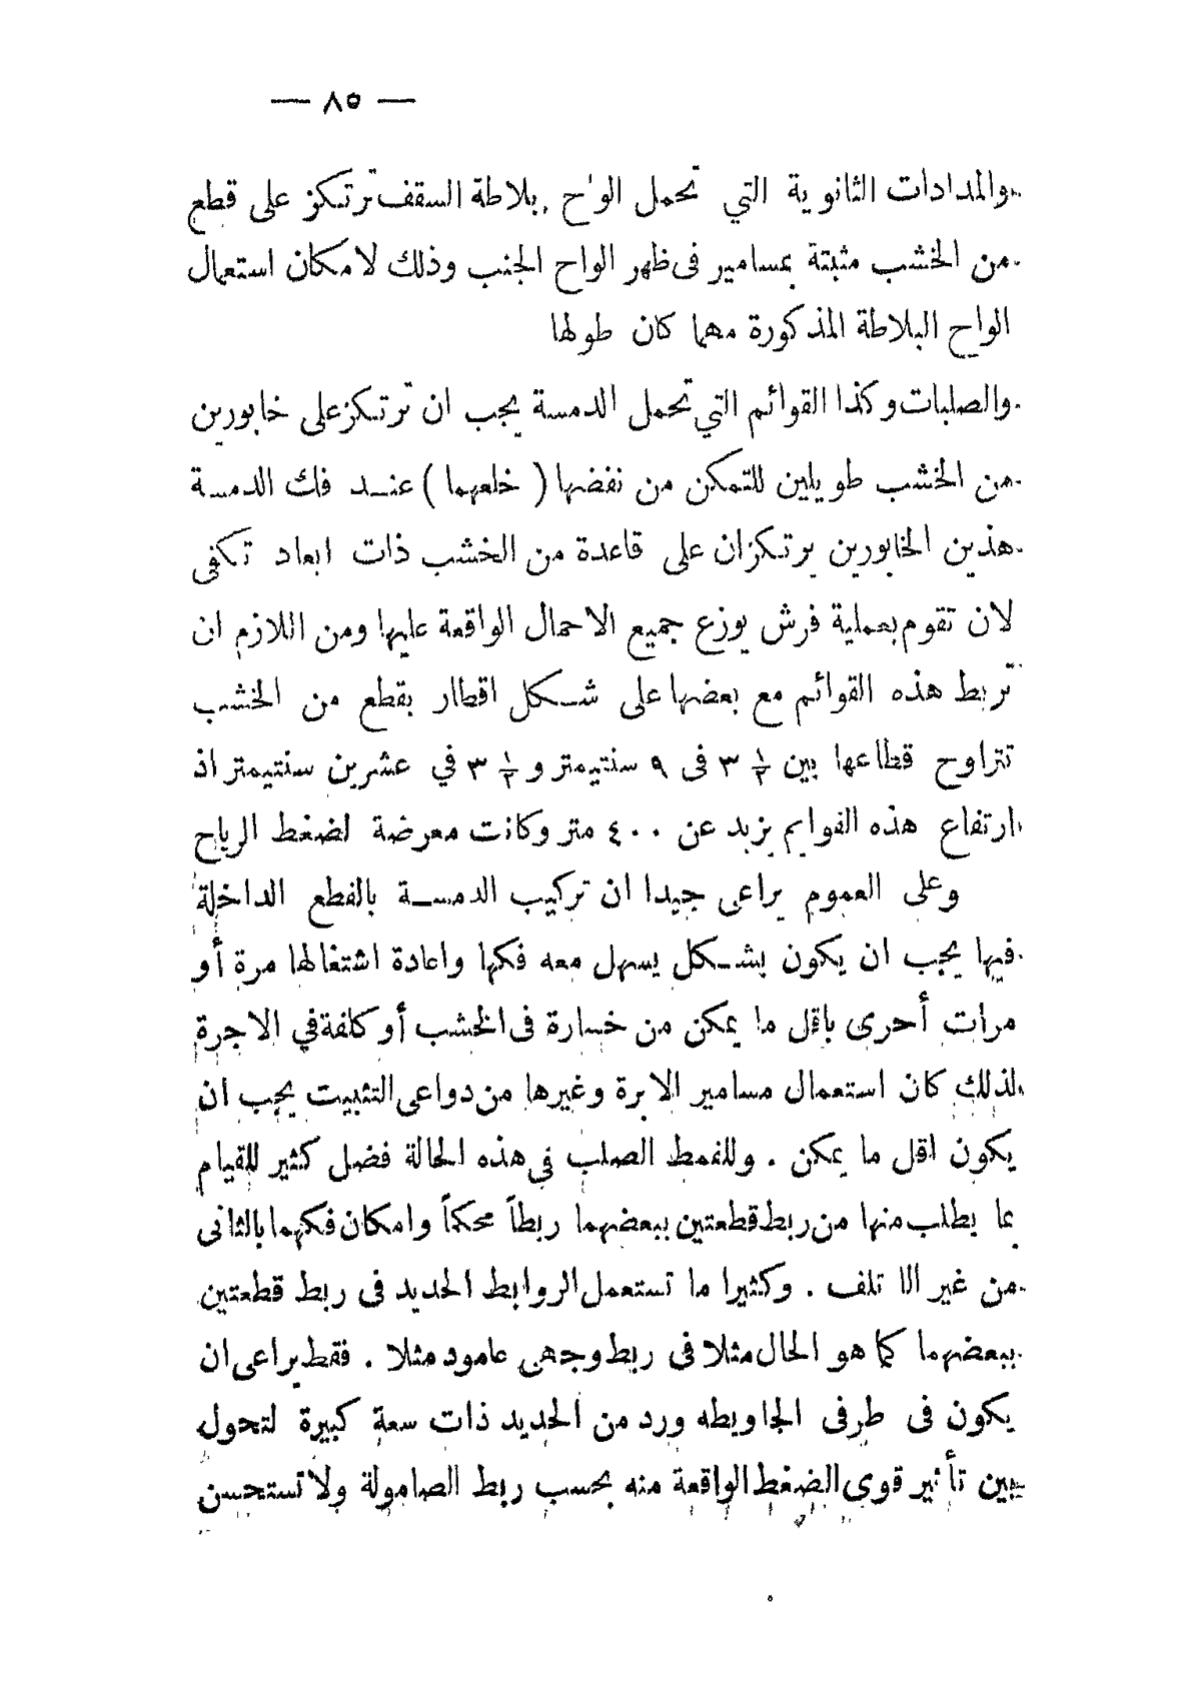 — ٨٥ —
والمدادات الثانوية التي تحمل الواح بلاطة السقف ترتكز على قطع
من الخشب مثبتة بمسامير فى ظهر الواح الجنب وذلك لامكان استعمال
الواح البلاطة المذكورة مهما كان طولها
والصلبات وكذا القوائم التي تحمل الدمسة يجب ان ترتكز على خابورين
من الخشب طويلين للتمكن من نفضها ( خلعهما ) عند فك الدمسة
هذين الخابورين يرتكزان على قاعدة من الخشب ذات ابعاد تكفى
لان تقوم بعملية فرش يوزع جميع الاحمال الواقعة عليها ومن اللازم ان
تربط هذه القوائم مع بعضها على شكل اقطار بقطع من الخشب
تتراوح قطاعها بين ½ ٣ فى ٩ سنتيمتر و ½ ٣ في عشرين سنتيمتر اذ
ارتفاع هذه القوايم يزيد عن ٤٠٠ متر وكانت معرضة لضغط الرياح
وعلى العموم يراعى جيدا ان تركيب الدمسة بالقطع الداخلة
فيها يجب ان يكون بشكل يسهل معه فكها واعادة اشتغالها مرة أو
مرات أحرى باقل ما يمكن من خسارة فى الخشب أو كلفة في الاجرة
لذلك كان استعمال مسامير الابرة وغيرها من دواعى التثبيت يجب ان
يكون اقل ما يمكن . وللقمط الصلب في هذه الحالة فضل كثير للقيام
بما يطلب منها من ربط قطعتين ببعضهما ربطاً محكماً وامكان فكهما بالثانى
من غير الا تلف . وكثيرا ما تستعمل الروابط الحديد فى ربط قطعتين
ببعضهما كما هو الحال مثلا فى ربط وجهى عامود مثلا . فقط يراعى ان
يكون فى طرفى الجاويطه ورد من الحديد ذات سعة كبيرة لتحول
بين تأثير قوى الضغط الواقعة منه بحسب ربط الصامولة ولا تستحسن